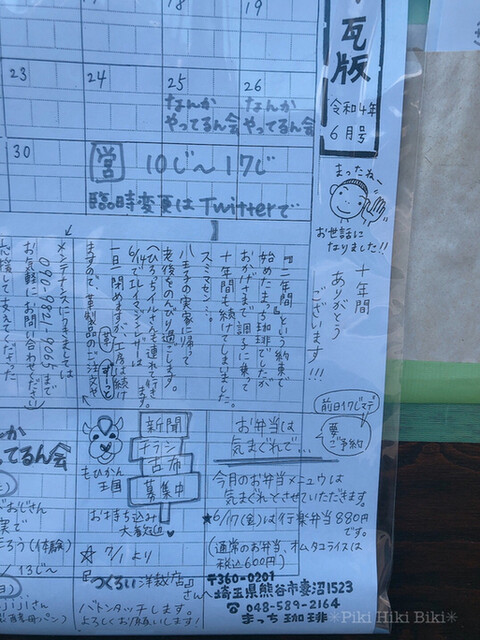 瓦版
令和4年
6月号
18
19
23
24
25
26
なんか
やってるん会
なんか
やってるん会
30
営 10じ〜17じ
臨時変更はTwitterで
まったね、
お世話に
なりました!!
十年間
ありがとう
ございます!!!
『二年間』という約束で
始めたまっち珈琲でしたが
おかげさまで調子に乗って
十年間も続けてしまいました。
スミマセン…。
八王子の実家に帰って
老後をのんびり過ごします。
ますので、革製品のご注文や
メンテナンスにつきましては
090-9921-9065まで
お気軽にお問い合わせください
前日17じマデ
要
ご予約
お弁当は
気まぐれで…
今月のお弁当メニュウは
気まぐれとさせていただきます。
★6/17(金)は行楽弁当880円
です。
(通常のお弁当、オムタコライスは
税込600円)
新聞
チラシ
古布
募集中
もひかん
王国
お持ち込み
大歓迎♥
☆7/1より
『つくろい洋裁店』
さんへ
バトンタッチします。
よろしくお願いします!
やってるん会
〒360-0201
埼玉県熊谷市妻沼1523
☎048-589-2164
まっち珈琲
*Piki Hiki Biki*